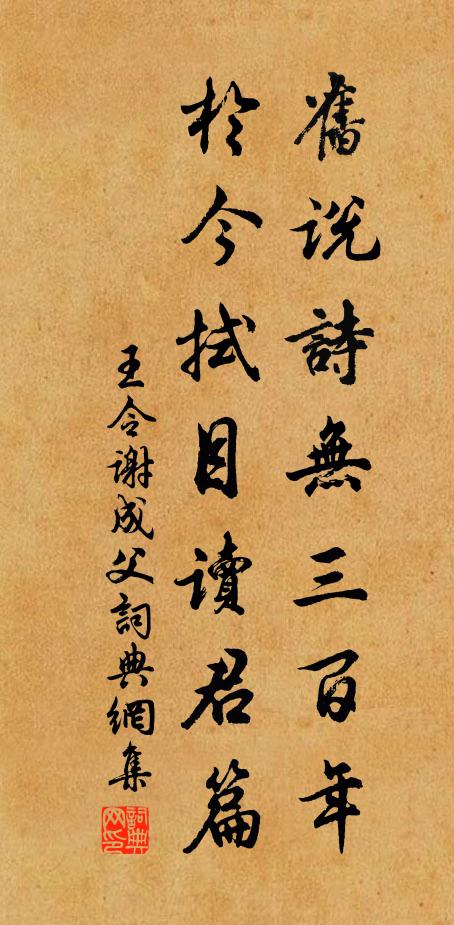 舊説詩無三百年
於今拭目讀君篇
王令謝成父詞典網集
詞典网印